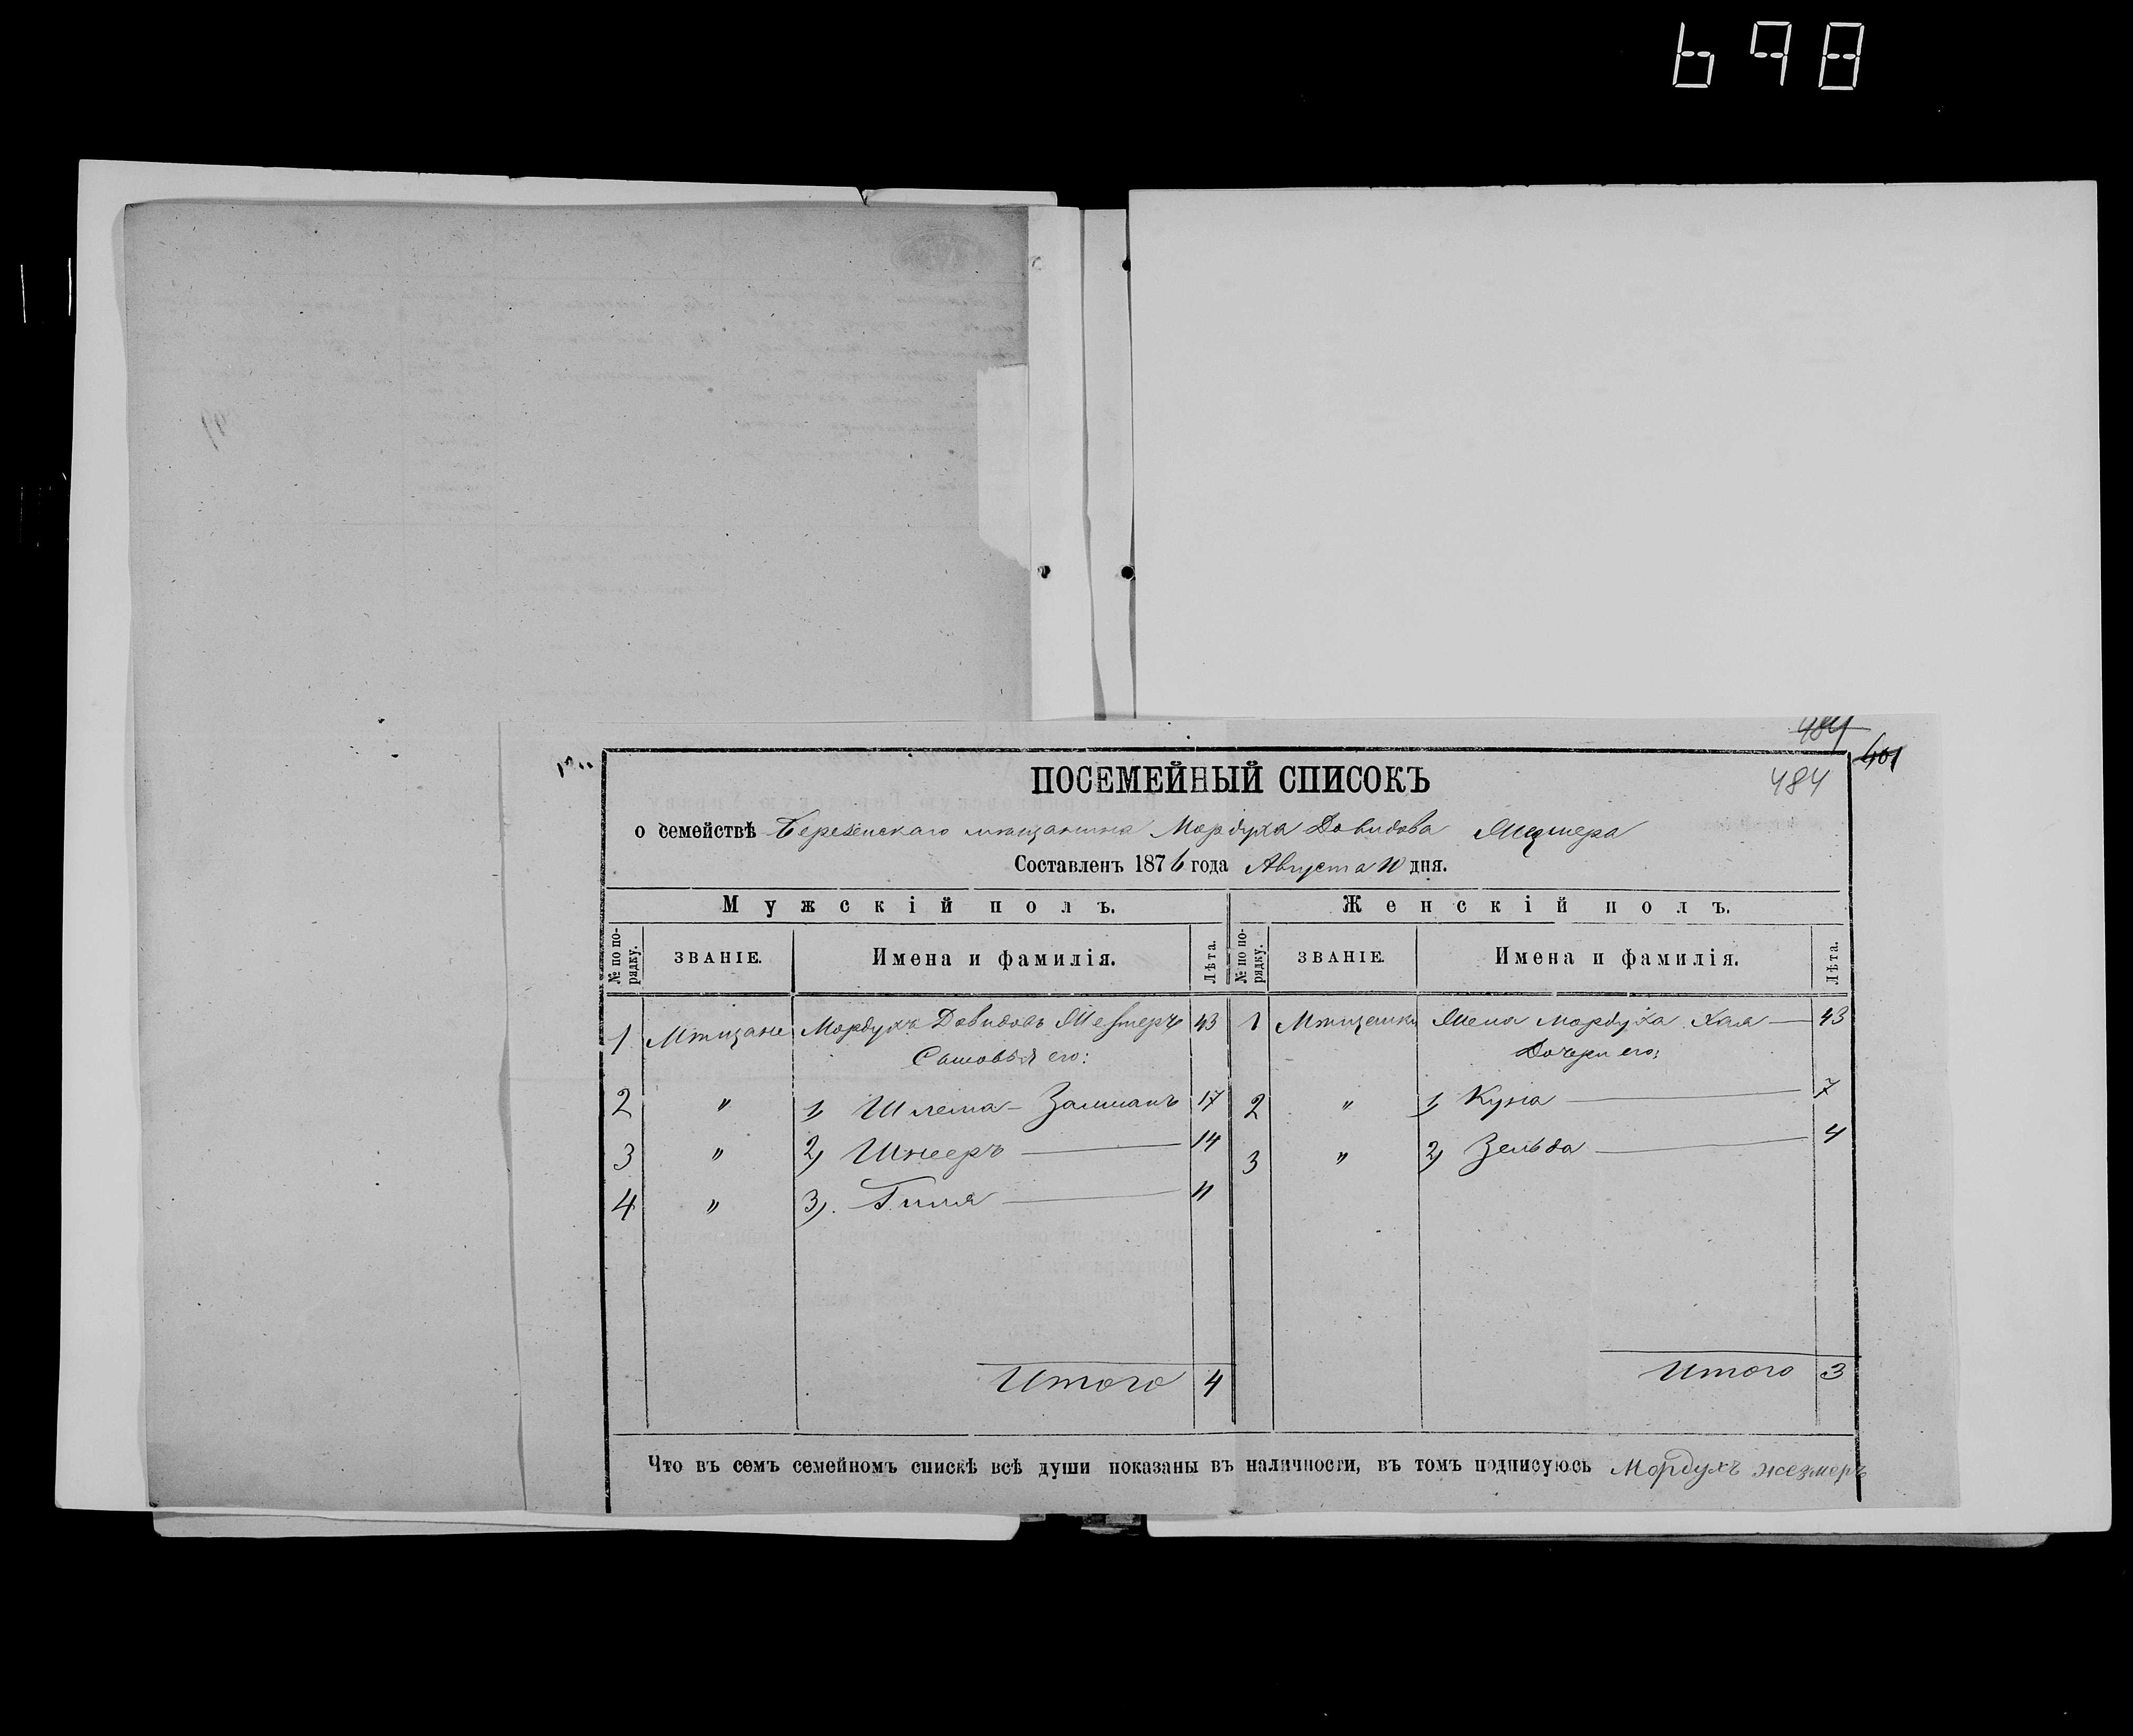 698
484
401
484
ПОСЕМЕЙНЫЙ СПИСОКЪ
о семействѣ Березенскаго мѣщанина Мордуха Довидова Жезмера
Составленъ 1876 года Августа 10 дня.
Мужскій полъ. Женскій полъ.
№ по порядку. ЗВАНІЕ. Имена и фамилія. Лѣта. № по порядку. ЗВАНІЕ. Имена и фамилія. Лѣта.
1 Мѣщане Мордухъ Довидовъ Жезмеръ 43 1 Мѣщанки Жена Мордуха Хая 43
Сыновья его: Дочери его:
2 " 1, Шлема-Залманъ 17 2 " 1, Куна 7
3 " 2, Шнееръ 14 3 " 2, Зельда 4
4 " 3, Гиля 11
Итого 4 Итого 3
Что въ семъ семейномъ спискѣ всѣ души показаны въ наличности, въ томъ подписуюсь Мордухъ жезмеръ